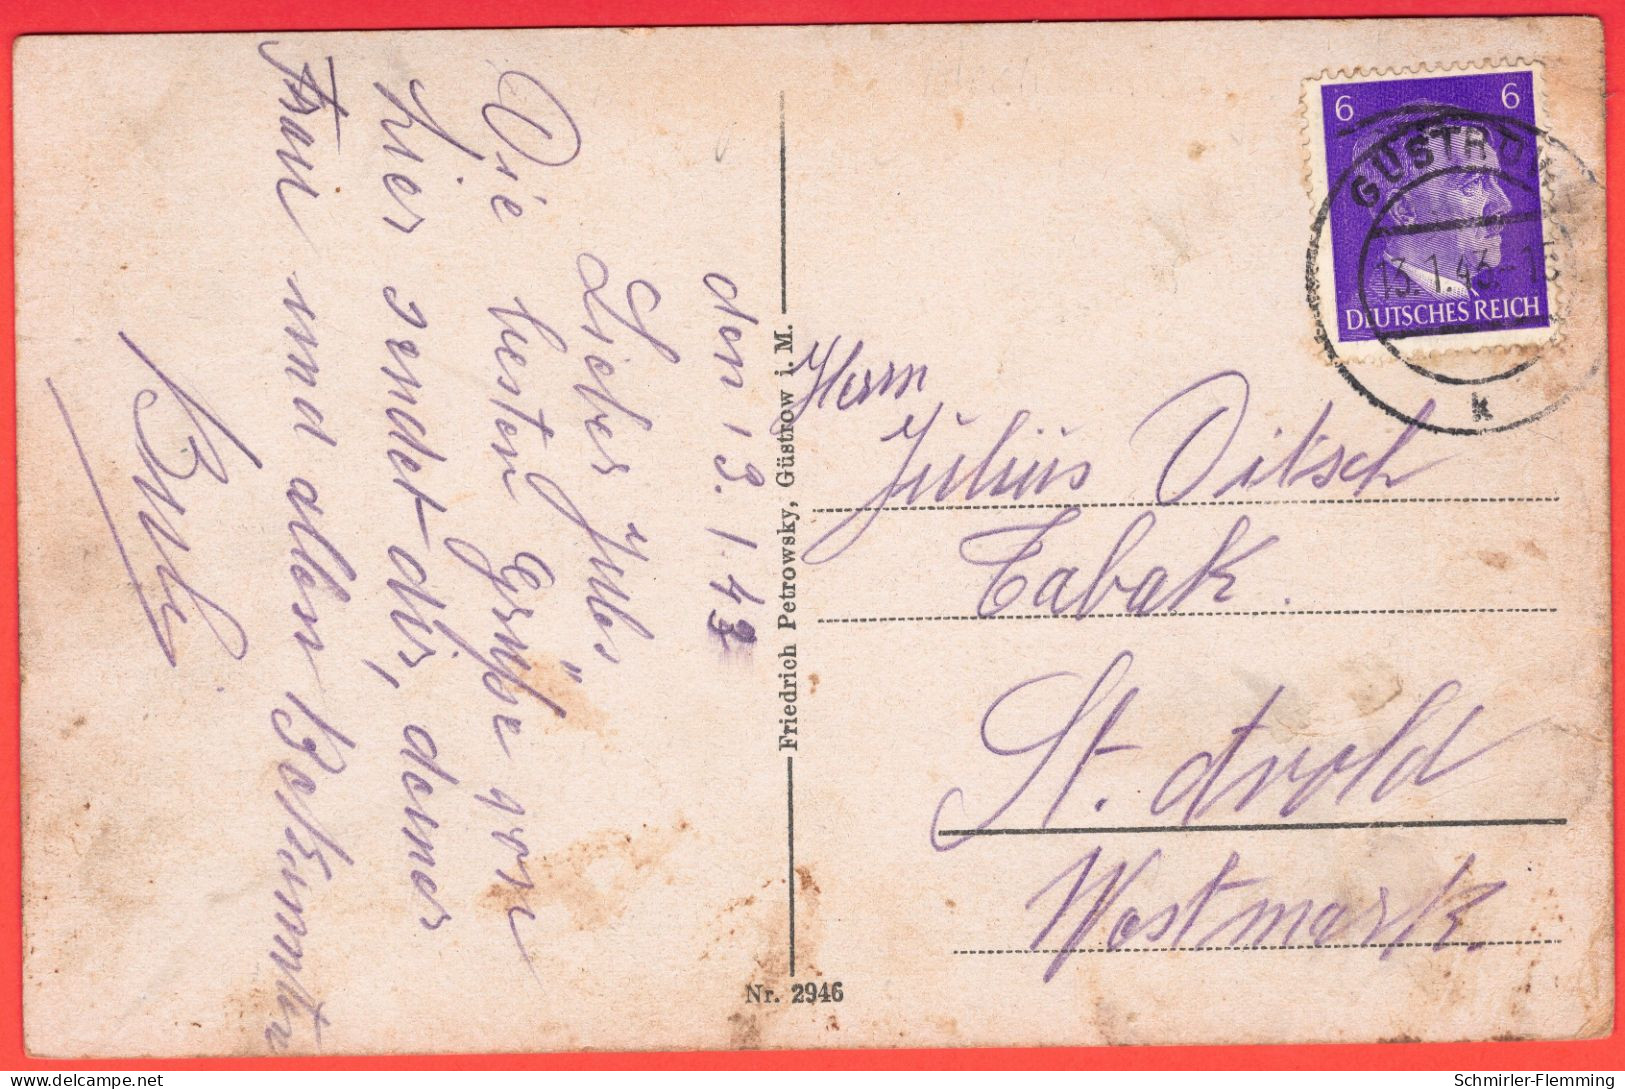 den 13.1.43
Lieber Jules
Die besten Grüße von
hier sendet dir, deiner
Frau und allen Bekannten
Herrn
Julius Ditsch
Tabak.
St. Avold
Westmark.
6 6
DEUTSCHES REICH
GÜSTROW
13.1.43.-15
k
Friedrich Petrowsky, Güstrow i. M.
Nr. 2946
Schmirler-Flemming